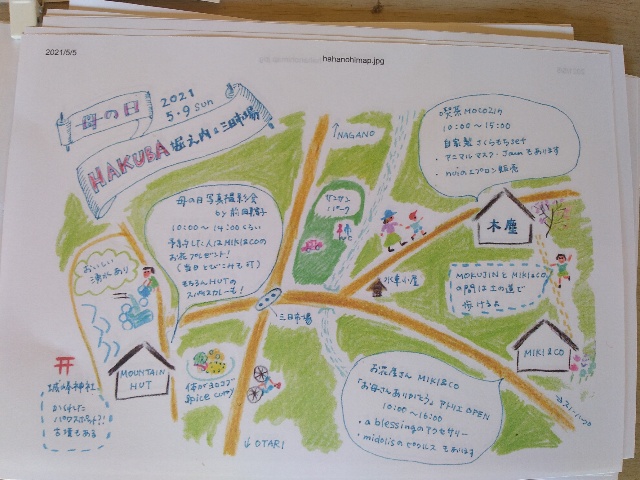 2021/5/5
hahanohimap.jpg
母の日
2021
5・9 sun
HAKUBA 堀之内&三日市場
↑NAGANO
喫茶MOCOZIN
10:00〜15:00
自家製さくらもちset
・アニマルマスク・Jamもあります
・nuiのエプロン販売
母の日写真撮影会
10:00〜14:00くらい
予約した人はMIKI&COの
お花プレゼント!
(当日とびこみも可)
もちろんHUTの
スパイスカレーも!
サンサン
パーク
木塵
おいしい
湧水あり
水車小屋
MOKUJINとMIKI&CO
の間は土の道で
歩けるよ
三日市場
MIKI&CO
MOUNTAIN
HUT
体がヨロコブ
spice curry
城峰神社
かくれた
パワースポット?!
古墳もある
お花屋さん MIKI&CO
「お母さんありがとう」アトリエOPEN
10:00〜16:00
・a blessingのアクセサリー
・midolisのピクルスもあります
↓OTARI